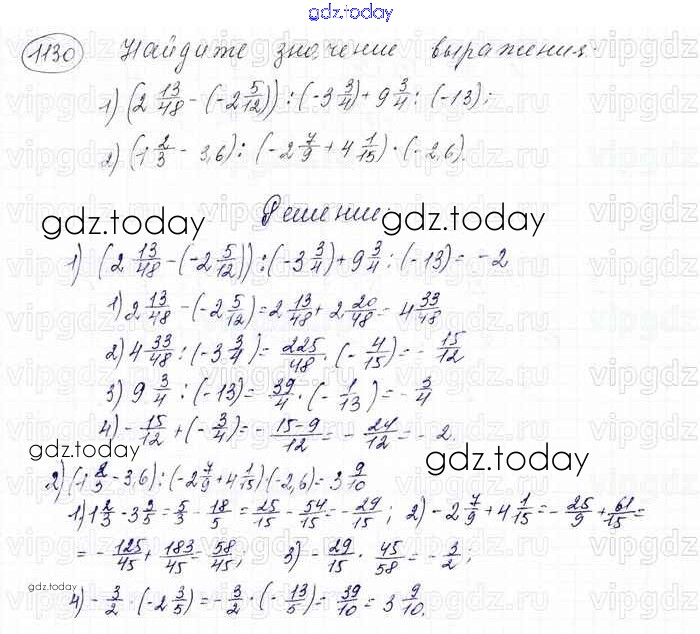 gdz.today
1130 Найдите значение выражения:
1) (2 13/48 - (-2 5/12)) : (-3 3/4) + 9 3/4 : (-13);
2) (1 2/3 - 3,6) : (-2 7/9 + 4 1/15) · (-2,6).
Решение:
gdz.today
gdz.today
1) (2 13/48 - (-2 5/12)) : (-3 3/4) + 9 3/4 : (-13) = -2
1) 2 13/48 - (-2 5/12) = 2 13/48 + 2 20/48 = 4 33/48
2) 4 33/48 : (-3 3/4) = 225/48 · (-4/15) = -15/12
3) 9 3/4 : (-13) = 39/4 · (-1/13) = -3/4
4) -15/12 + (-3/4) = -15-9/12 = -24/12 = -2.
gdz.today
gdz.today
2) (1 2/3 - 3,6) : (-2 7/9 + 4 1/15) (-2,6) = 3 9/10
1) 1 2/3 - 3 3/5 = 5/3 - 18/5 = 25/15 - 54/15 = -29/15; 2) -2 7/9 + 4 1/15 = -25/9 + 61/15 =
= -125/45 + 183/45 = 58/45; 3) -29/15 · 45/58 = -3/2;
gdz.today
4) -3/2 · (-2 3/5) = -3/2 · (-13/5) = 39/10 = 3 9/10.